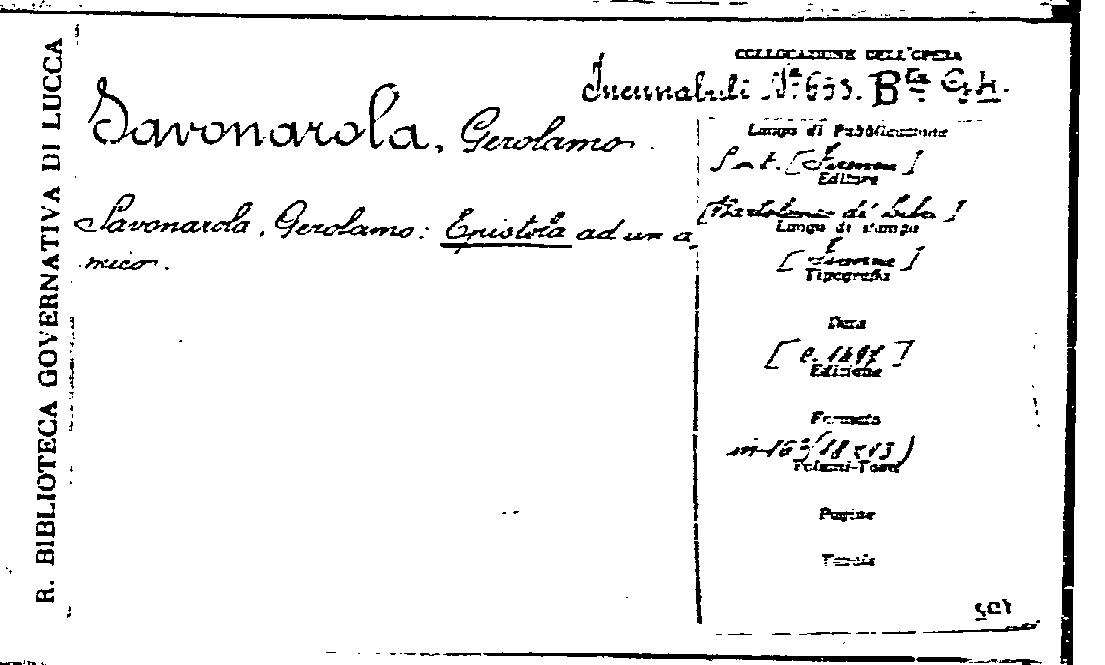 R. BIBLIOTECA GOVERNATIVA DI LUCCA
COLLOCAZIONE DELL'OPERA
Incunabuli Nº 653. Bta G.H.
Savonarola, Gerolamo.
Savonarola, Gerolamo: Epistola ad un a
mico.
Luogo di Pubblicazione
S.n.t. [Firenze]
Editore
[Bartolomeo di Libri]
Luogo di stampa
[Firenze]
Tipografia
Data
[c. 1497]
Edizione
Formato
in-16º (18 x 13)
Volumi-Tomi
Pagine
Tavole